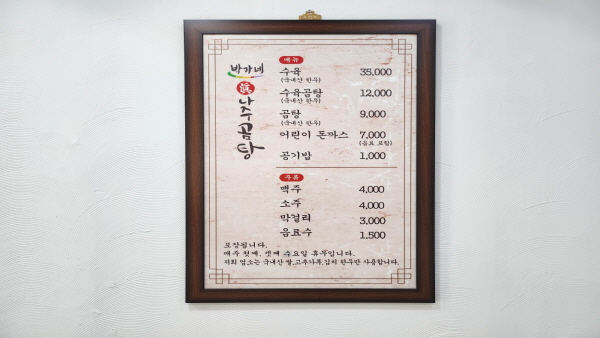 박가네
眞
나주곰탕
메뉴
수육 35,000
(국내산 한우)
수육곰탕 12,000
(국내산 한우)
곰탕 9,000
(국내산 한우)
어린이 돈까스 7,000
(음료 포함)
공기밥 1,000
주류
맥주 4,000
소주 4,000
막걸리 3,000
음료수 1,500
포장됩니다.
매주 첫째, 셋째 수요일 휴무입니다.
저희 업소는 국내산 쌀,고추가루,김치 한우만 사용합니다.